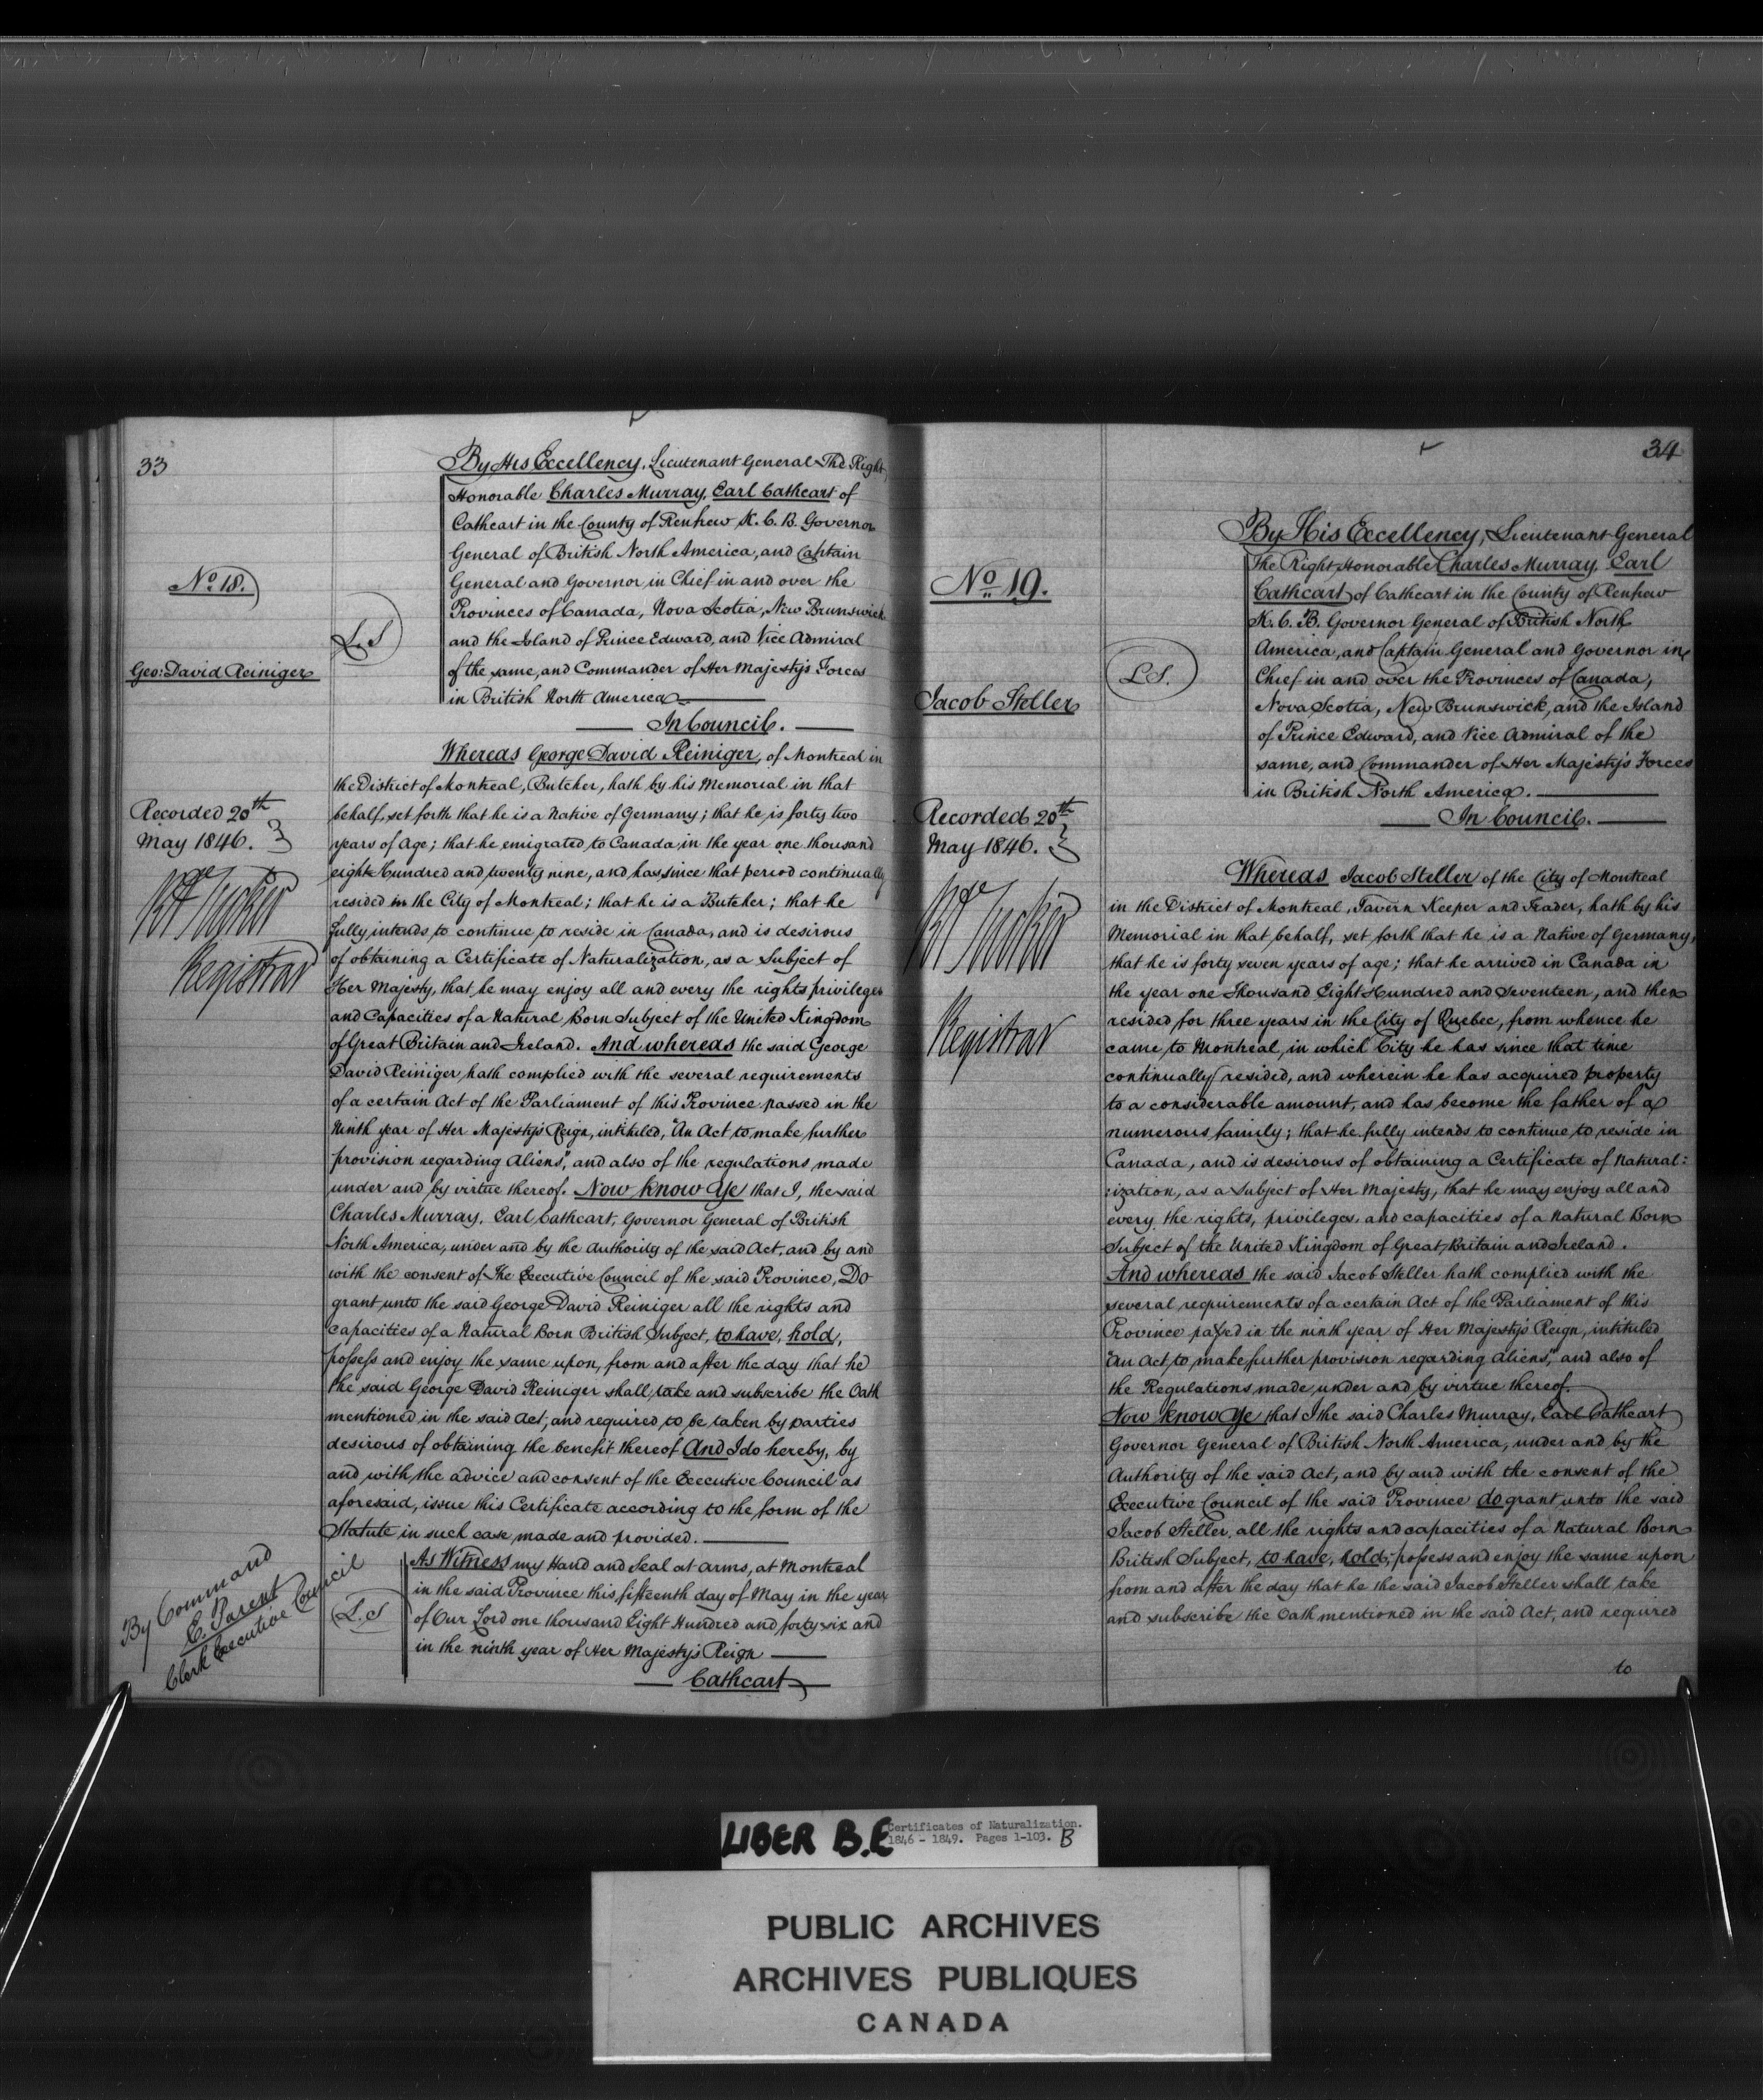 33
By His Excellency, Lieutenant General The Right
Honorable Charles Murray, Earl Cathcart of
Cathcart in the County of Renfrew K. C. B. Governor
General of British North America, and Captain
General and Governor in Chief in and over the
Provinces of Canada, Nova Scotia, New Brunswick
and the Island of Prince Edward, and Vice Admiral
of the same, and Commander of Her Majesty's Forces
in British North America
In Council.
No 18.
L.S
Geo: David Reiniger
Recorded 20th
May 1846.
Registrar
Whereas George David Reiniger, of Montreal in
the District of Montreal, Butcher, hath by his Memorial in that
behalf, set forth that he is a Native of Germany; that he is forty two
years of age; that he emigrated to Canada in the year one thousand
eight Hundred and twenty nine, and has since that period continually
resided in the City of Montreal; that he is a Butcher; that he
fully intends to continue to reside in Canada, and is desirous
of obtaining a Certificate of Naturalization, as a Subject of
Her Majesty, that he may enjoy all and every the rights privileges
and Capacities of a Natural Born Subject of the United Kingdom
of Great Britain and Ireland. And whereas the said George
David Reiniger hath complied with the several requirements
of a certain Act of the Parliament of this Province passed in the
Ninth year of Her Majesty's Reign, intituled, "An Act to make further
provision regarding Aliens", and also of the regulations made
under and by virtue thereof. Now know Ye that I, the said
Charles Murray, Earl Cathcart, Governor General of British
North America, under and by the Authority of the said Act, and by and
with the consent of The Executive Council of the said Province, Do
grant unto the said George David Reiniger all the rights and
capacities of a Natural Born British Subject, to have, hold,
possess and enjoy the same upon, from and after the day that he
the said George David Reiniger shall take and subscribe the Oath
mentioned in the said Act, and required to be taken by parties
desirous of obtaining the benefit thereof And I do hereby, by
and with the advice and consent of the Executive Council as
aforesaid, issue this Certificate according to the form of the
Statute in such case made and provided.
As Witness my Hand and Seal at Arms, at Montreal
in the said Province this fifteenth day of May in the year
of Our Lord one thousand Eight Hundred and forty six and
in the ninth year of Her Majesty's Reign
Cathcart
L.S
By Command
E. Parent
Clerk Executive Council
34
By His Excellency, Lieutenant General
The Right Honorable Charles Murray, Earl
Cathcart of Cathcart in the County of Renfrew
K. C. B. Governor General of British North
America, and Captain General and Governor in
Chief in and over the Provinces of Canada,
Nova Scotia, New Brunswick, and the Island
of Prince Edward, and Vice Admiral of the
same, and Commander of Her Majesty's Forces
in British North America.
In Council.
No 19.
L.S.
Jacob Steller
Recorded 20th
May 1846.
Registrar
Whereas Jacob Steller of the City of Montreal
in the District of Montreal, Tavern Keeper and Trader, hath by his
Memorial in that behalf, set forth that he is a Native of Germany,
that he is forty seven years of age; that he arrived in Canada in
the year one Thousand Eight Hundred and Seventeen, and then
resided for three years in the City of Quebec, from whence he
came to Montreal, in which City he has since that time
continually resided, and wherein he has acquired property
to a considerable amount, and has become the father of a
numerous family; that he fully intends to continue to reside in
Canada, and is desirous of obtaining a Certificate of Natural:
:ization, as a Subject of Her Majesty, that he may enjoy all and
every the rights, privileges, and capacities of a Natural Born
Subject of the United Kingdom of Great Britain and Ireland.
And whereas the said Jacob Steller hath complied with the
several requirements of a certain Act of the Parliament of this
Province passed in the ninth year of Her Majesty's Reign, intituled
"An Act to make further provision regarding Aliens", and also of
the Regulations made under and by virtue thereof.
Now know Ye that I the said Charles Murray, Earl Cathcart
Governor General of British North America, under and by the
Authority of the said Act, and by and with the consent of the
Executive Council of the said Province do grant unto the said
Jacob Steller, all the rights and capacities of a Natural Born
British Subject, to have, hold, possess and enjoy the same upon
from and after the day that he the said Jacob Steller shall take
and subscribe the Oath mentioned in the said Act, and required
to
LIBER B.E
Certificates of Naturalization.
1846 - 1849. Pages 1-103. B
PUBLIC ARCHIVES
ARCHIVES PUBLIQUES
CANADA